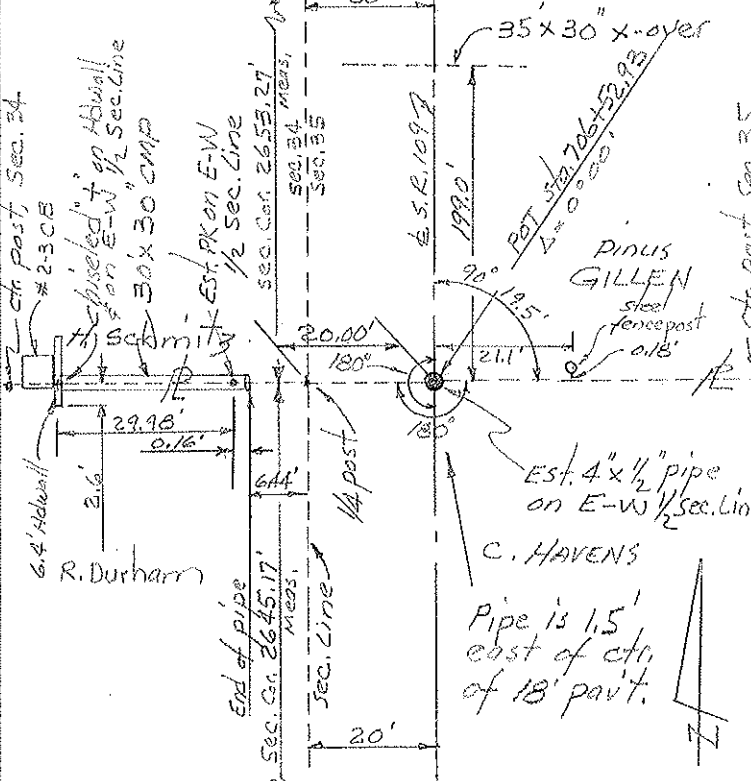 35' x 30" x-over
ctr. post, Sec. 34
#2-3CB
chiseled "+" on Hdwall
on E-W 1/2 Sec. Line
30' x 30" CMP
Est. PK on E-W
1/2 Sec. Line
Sec. Cor. 2653.27'
Meas.
Sec. 34
Sec. 35
S.R. 109
199.0'
POT Sta. 706+52.93
Δ = 0°00'
90°
19.5'
Pinus
GILLEN
steel
fencepost
0.18'
21.1'
H. Schmitz
20.00'
180°
180°
29.98'
0.16'
6.44'
1/4 post
6.4' Hdwall
2.6'
R. Durham
Est. 4" x 1/2" pipe
on E-W 1/2 Sec. Lin
C. HAVENS
Pipe is 1.5'
east of ctr.
of 18' pav't.
End of pipe
Sec. Cor. 2645.17'
Meas.
Sec. Line
20'
N